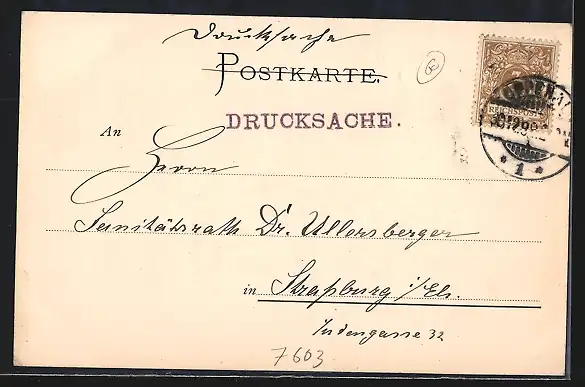 Drucksache
POSTKARTE.
DRUCKSACHE.
REICHSPOST
An
Herrn
Sanitätsrath Dr. Ullersberger
in Straßburg i/Els.
Judengasse 32
7603